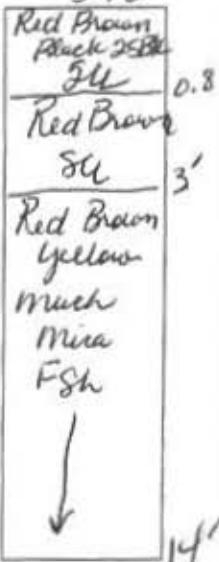 Red Brown
Black
0.8
Red Brown
3'
Red Brown
Yellow
Much
Mica
FSh
14'